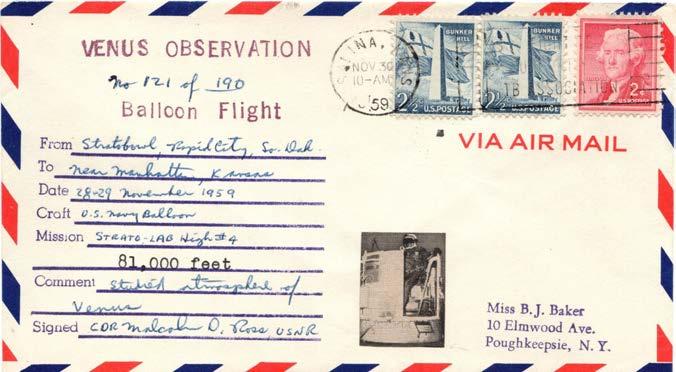 VENUS OBSERVATION
No 121 of 190
Balloon Flight
From Stratobowl, Rapid City, So. Dak.
To near Manhattan, Kansas
Date 28-29 November 1959
Craft U.S. Navy Balloon
Mission STRATO-LAB High #4
81,000 feet
Comment studied atmosphere of
Venus
Signed CDR Malcolm D. Ross, USNR
SALINA, KANS
NOV 30
10-AM
1959
BUNKER
HILL
2½¢ U.S. POSTAGE
BUNKER
HILL
2½¢ U.S. POSTAGE
2¢
U.S. POSTAGE
TB ASSOCIATION
VIA AIR MAIL
Miss B. J. Baker
10 Elmwood Ave.
Poughkeepsie, N. Y.